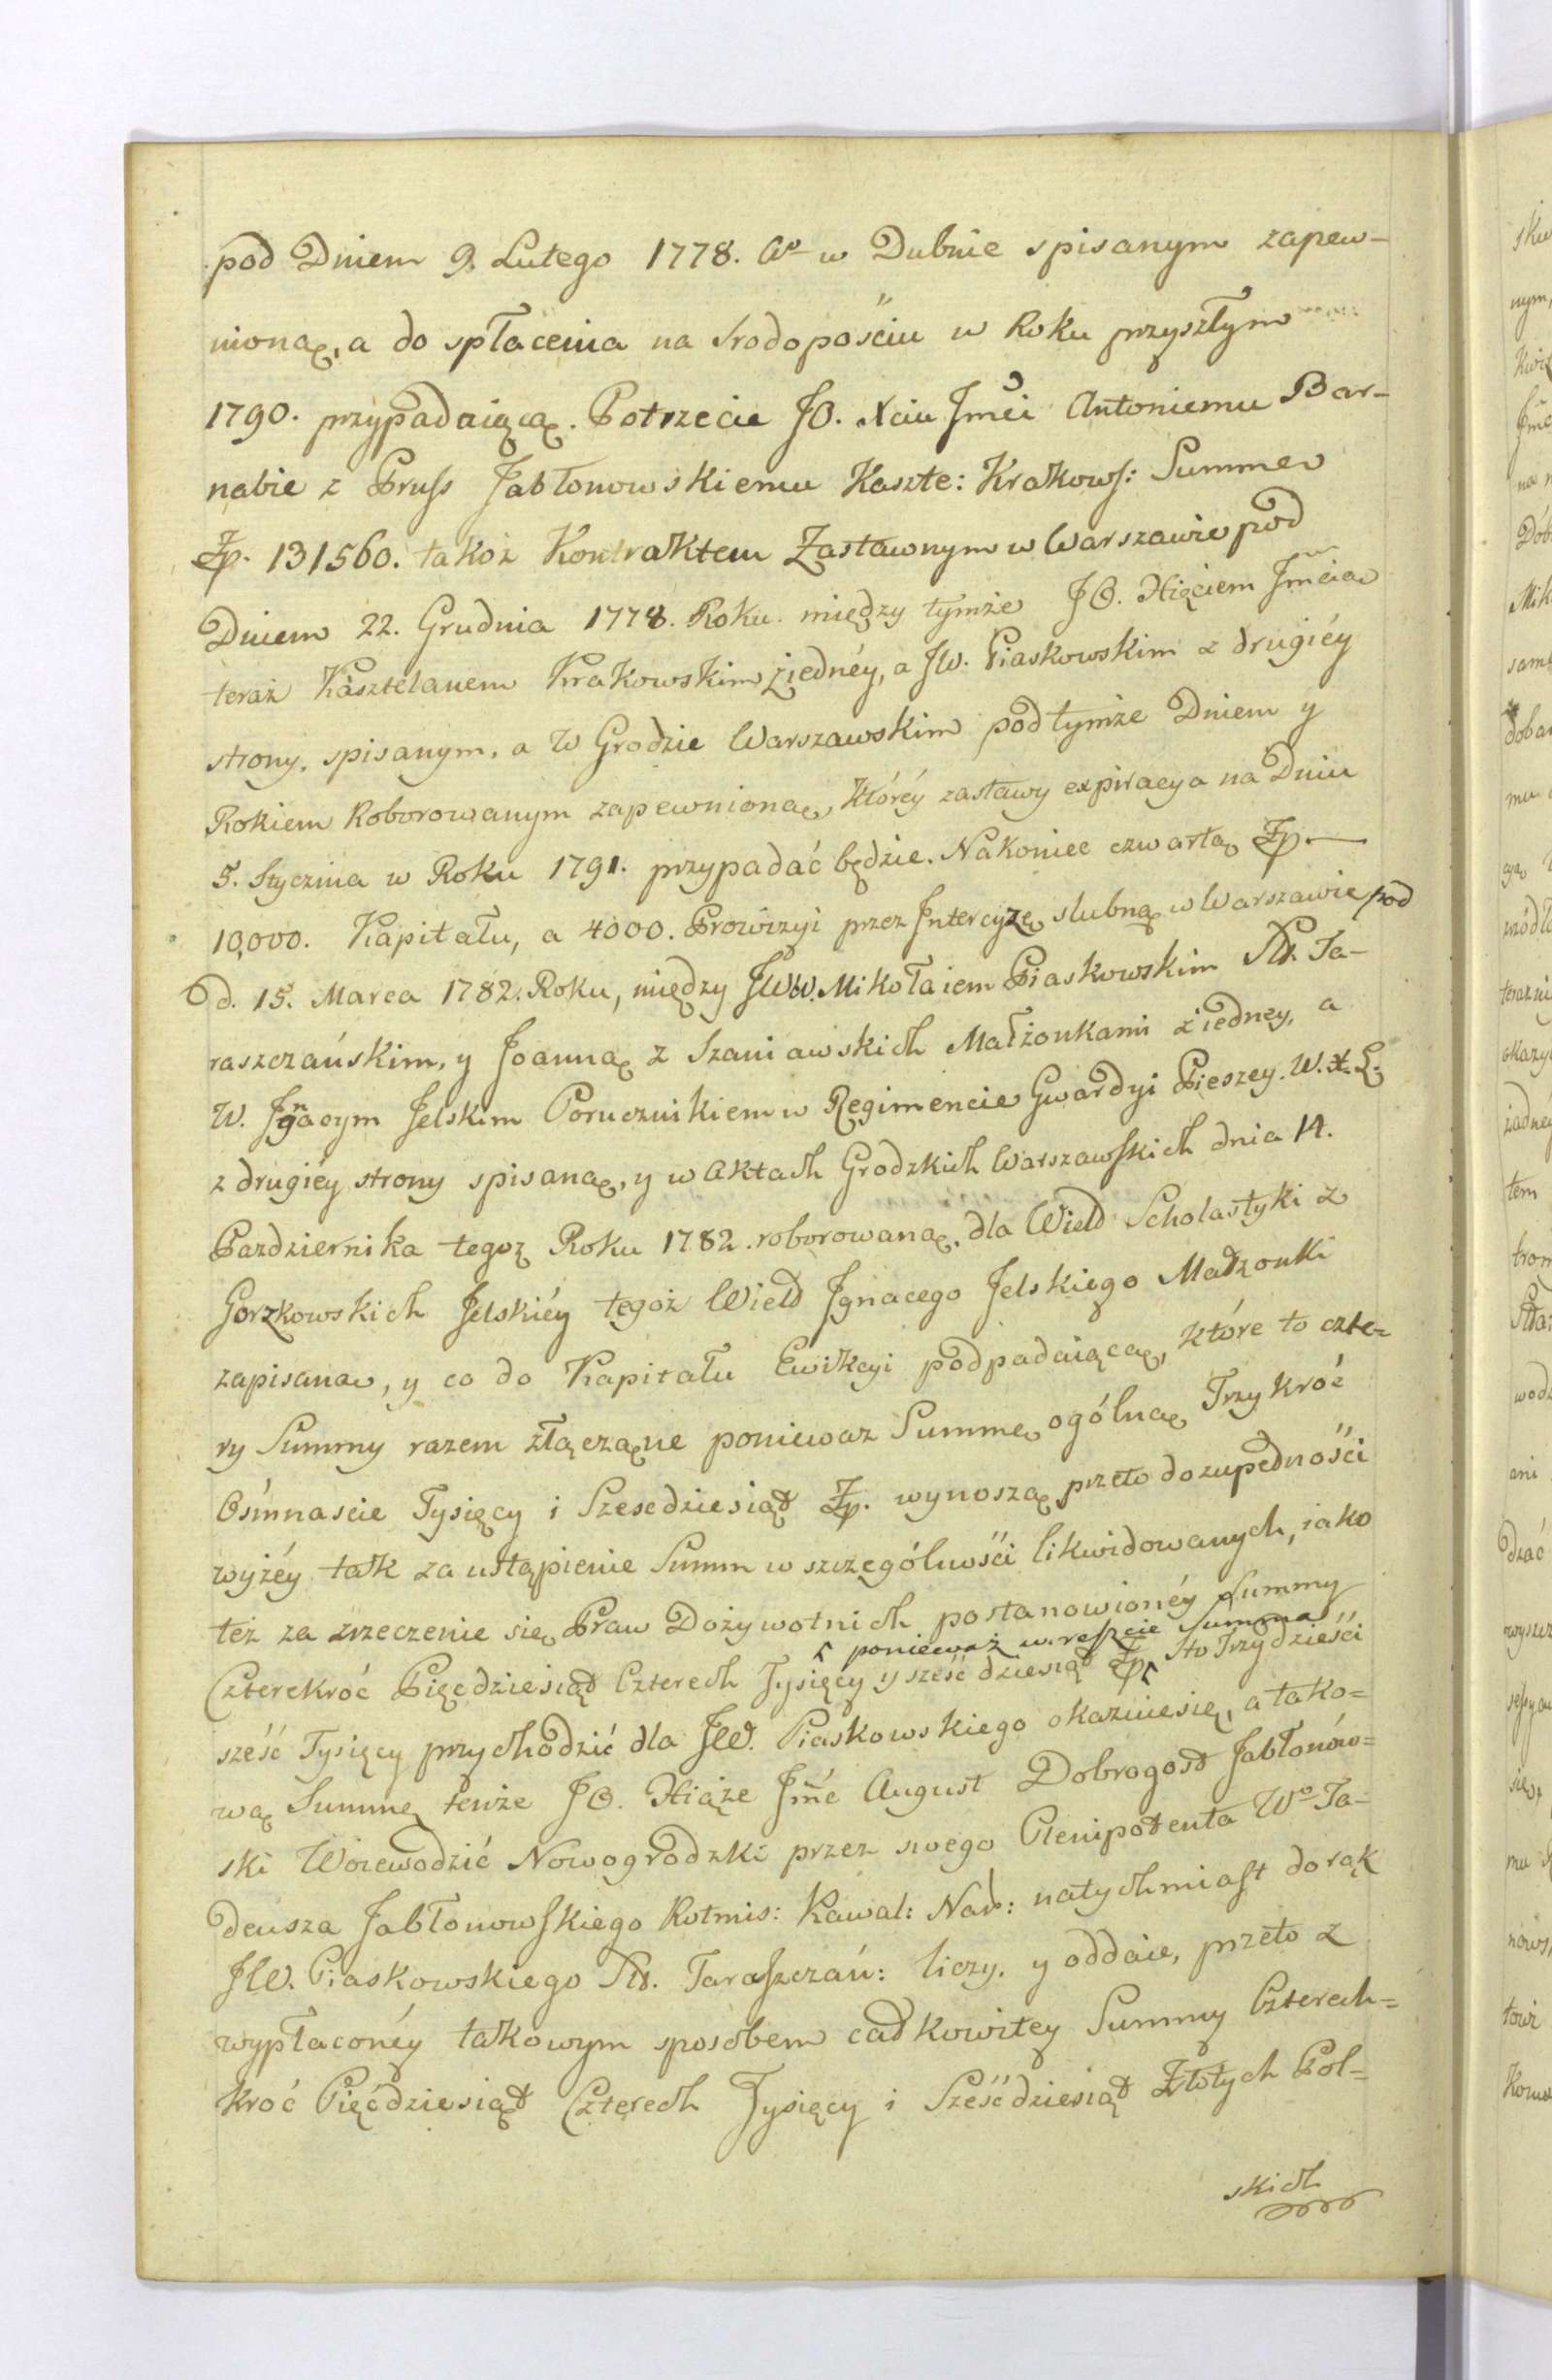 pod Dniem 9. Lutego 1778. Aº w Dubnie spisanym zapew-
nioną, a do spłacenia na Srodopościu w Roku przyszłym
1790. przypadaiącą. Potrzecie JO. Xciu Jmci Antoniemu Bar-
nabie z Pruss Jabłonowskiemu Kaszte: Krakows: Summę
Zp. 131560. takoż Kontraktem Zastawnym w Warszawie pod
Dniem 22. Grudnia 1778. Roku. między tymże JO. Xięciem Jmcią
teraż Kasztelanem Krakowskim z iednéy, a JW. Piaskowskim z drugiéy
strony, spisanym, a w Grodzie Warszawskim pod tymże Dniem y
Rokiem Roborowanym zapewnioną, któréy zastawy expiracya na Dniu
5. Stycznia w Roku 1791. przypadać będzie. Nakoniec czwartą Zp. —
10,000. Kapitału, a 4000. Prowizyi przez Intercyzę slubną w Warszawie pod
d. 15. Marca 1782. Roku, między JWW. Mikołaiem Piaskowskim St. Ta-
raszczańskim, y Joanną z Szaniawskich Małżonkami z iedney, a
W. Jgnacym Jelskim Porucznikiem w Regimencie Gwardyi Pieszey. W. X. L.
z drugiéy strony spisaną, y w Aktach Grodzkich Warszawskich dnia 14.
Pazdziernika tegoż Roku 1782. roborowaną, dla Wield Scholastyki z
Gorzkowskich Jelskiéy tegoż Wield Jgnacego Jelskiego Małzonki
zapisaną, y co do Kapitału Ewikcyi podpadaiącą, które to czte=
ry Summy razem złączone poniewaz Summę ogólną Trzykróć
Osmnascie Tysięcy i Szescdziesiąt Zp. wynoszą, przeto do zupełności
wyżéy tak za ustąpienie Summ w szczególności likwidowanych, iako
też za zrzeczenie się Praw Dożywotnich postanowionéy Summy
ponieważ w reszcie Summa
Czterekróć Pięcdziesiąt Czterech Tysięcy y sześćdziesiąt Zp. Sto Trzydzieści
sześć Tysięcy przychodzić dla JW. Piaskowskiego okaznie się, a tako=
wą Summę tenże JO. Xiąże Jmć August Dobrogost Jabłonów=
ski Woiewodzić Nowogrodzki przez swego Plenipotenta Wº Ta-
deusza Jabłonowskiego Rotmis: Kawal: Nar: natychmiast do rąk
JW. Piaskowskiego St. Taraszczań: liczy, y oddaie, przeto z
wypłaconéy takowym sposobem całkowitey Summy Czterech=
kroć Pięćdziesiąt Czterech Tysięcy i Sześćdziesiąt Złotych Pol=
skich